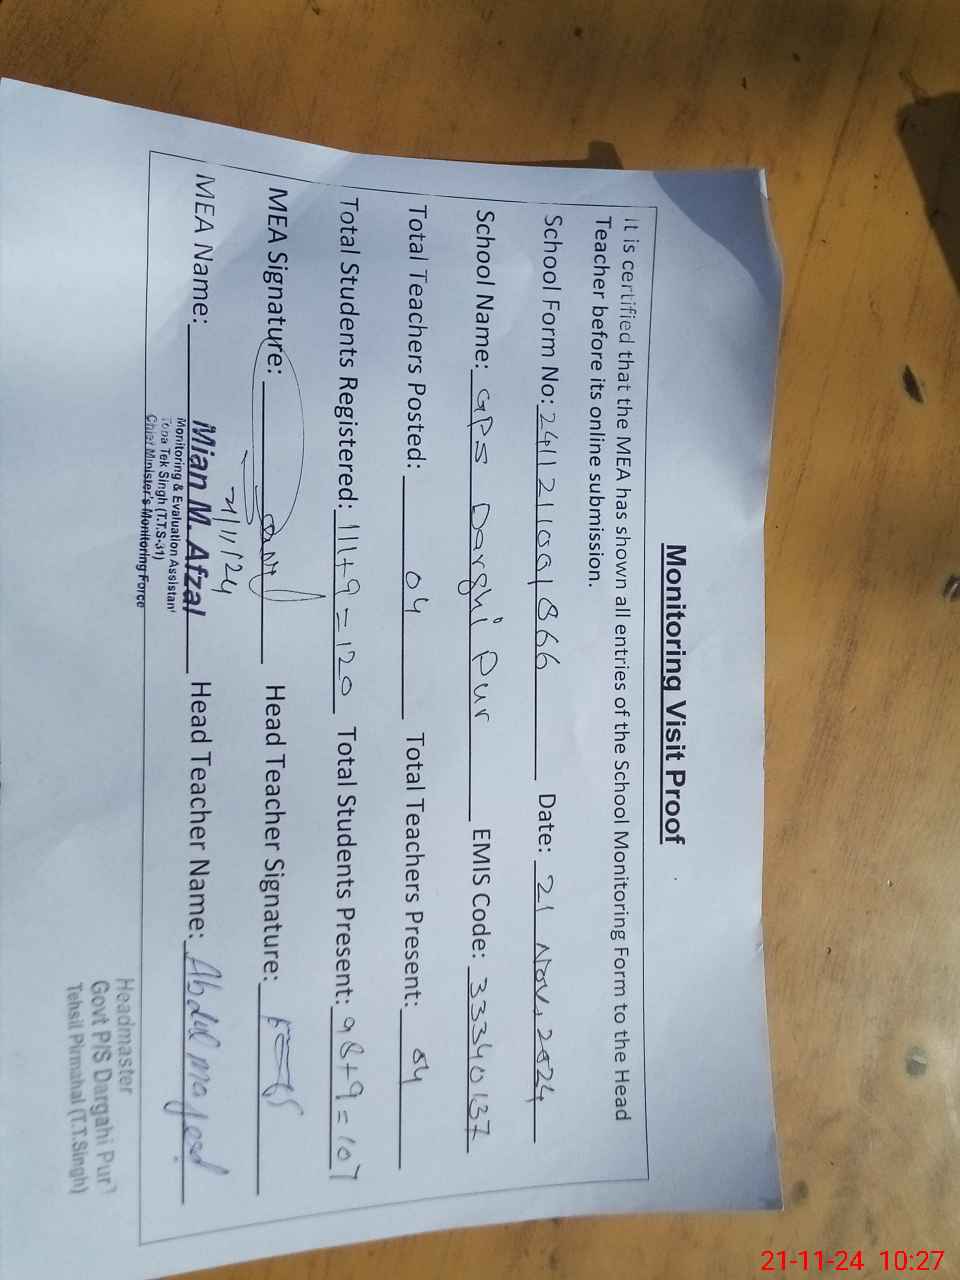 Monitoring Visit Proof
It is certified that the MEA has shown all entries of the School Monitoring Form to the Head
Teacher before its online submission.
School Form No: 2411 21001866 Date: 21 Nov, 2024
School Name: GPS Darghi Pur EMIS Code: 33340137
Total Teachers Posted: 04 Total Teachers Present: 04
Total Students Registered: 111+9=120 Total Students Present: 98+9=107
MEA Signature: Head Teacher Signature:
21/11/24
MEA Name: Mian M. Afzal Head Teacher Name: Abdul
Monitoring & Evaluation Assistant
Toba Tek Singh (T.T.S-31)
Chief Minister's Monitoring Force
Headmaster
Govt P/S Dargahi Pur
Tehsil Pirmahal (T.T.Singh)
21-11-24 10:27